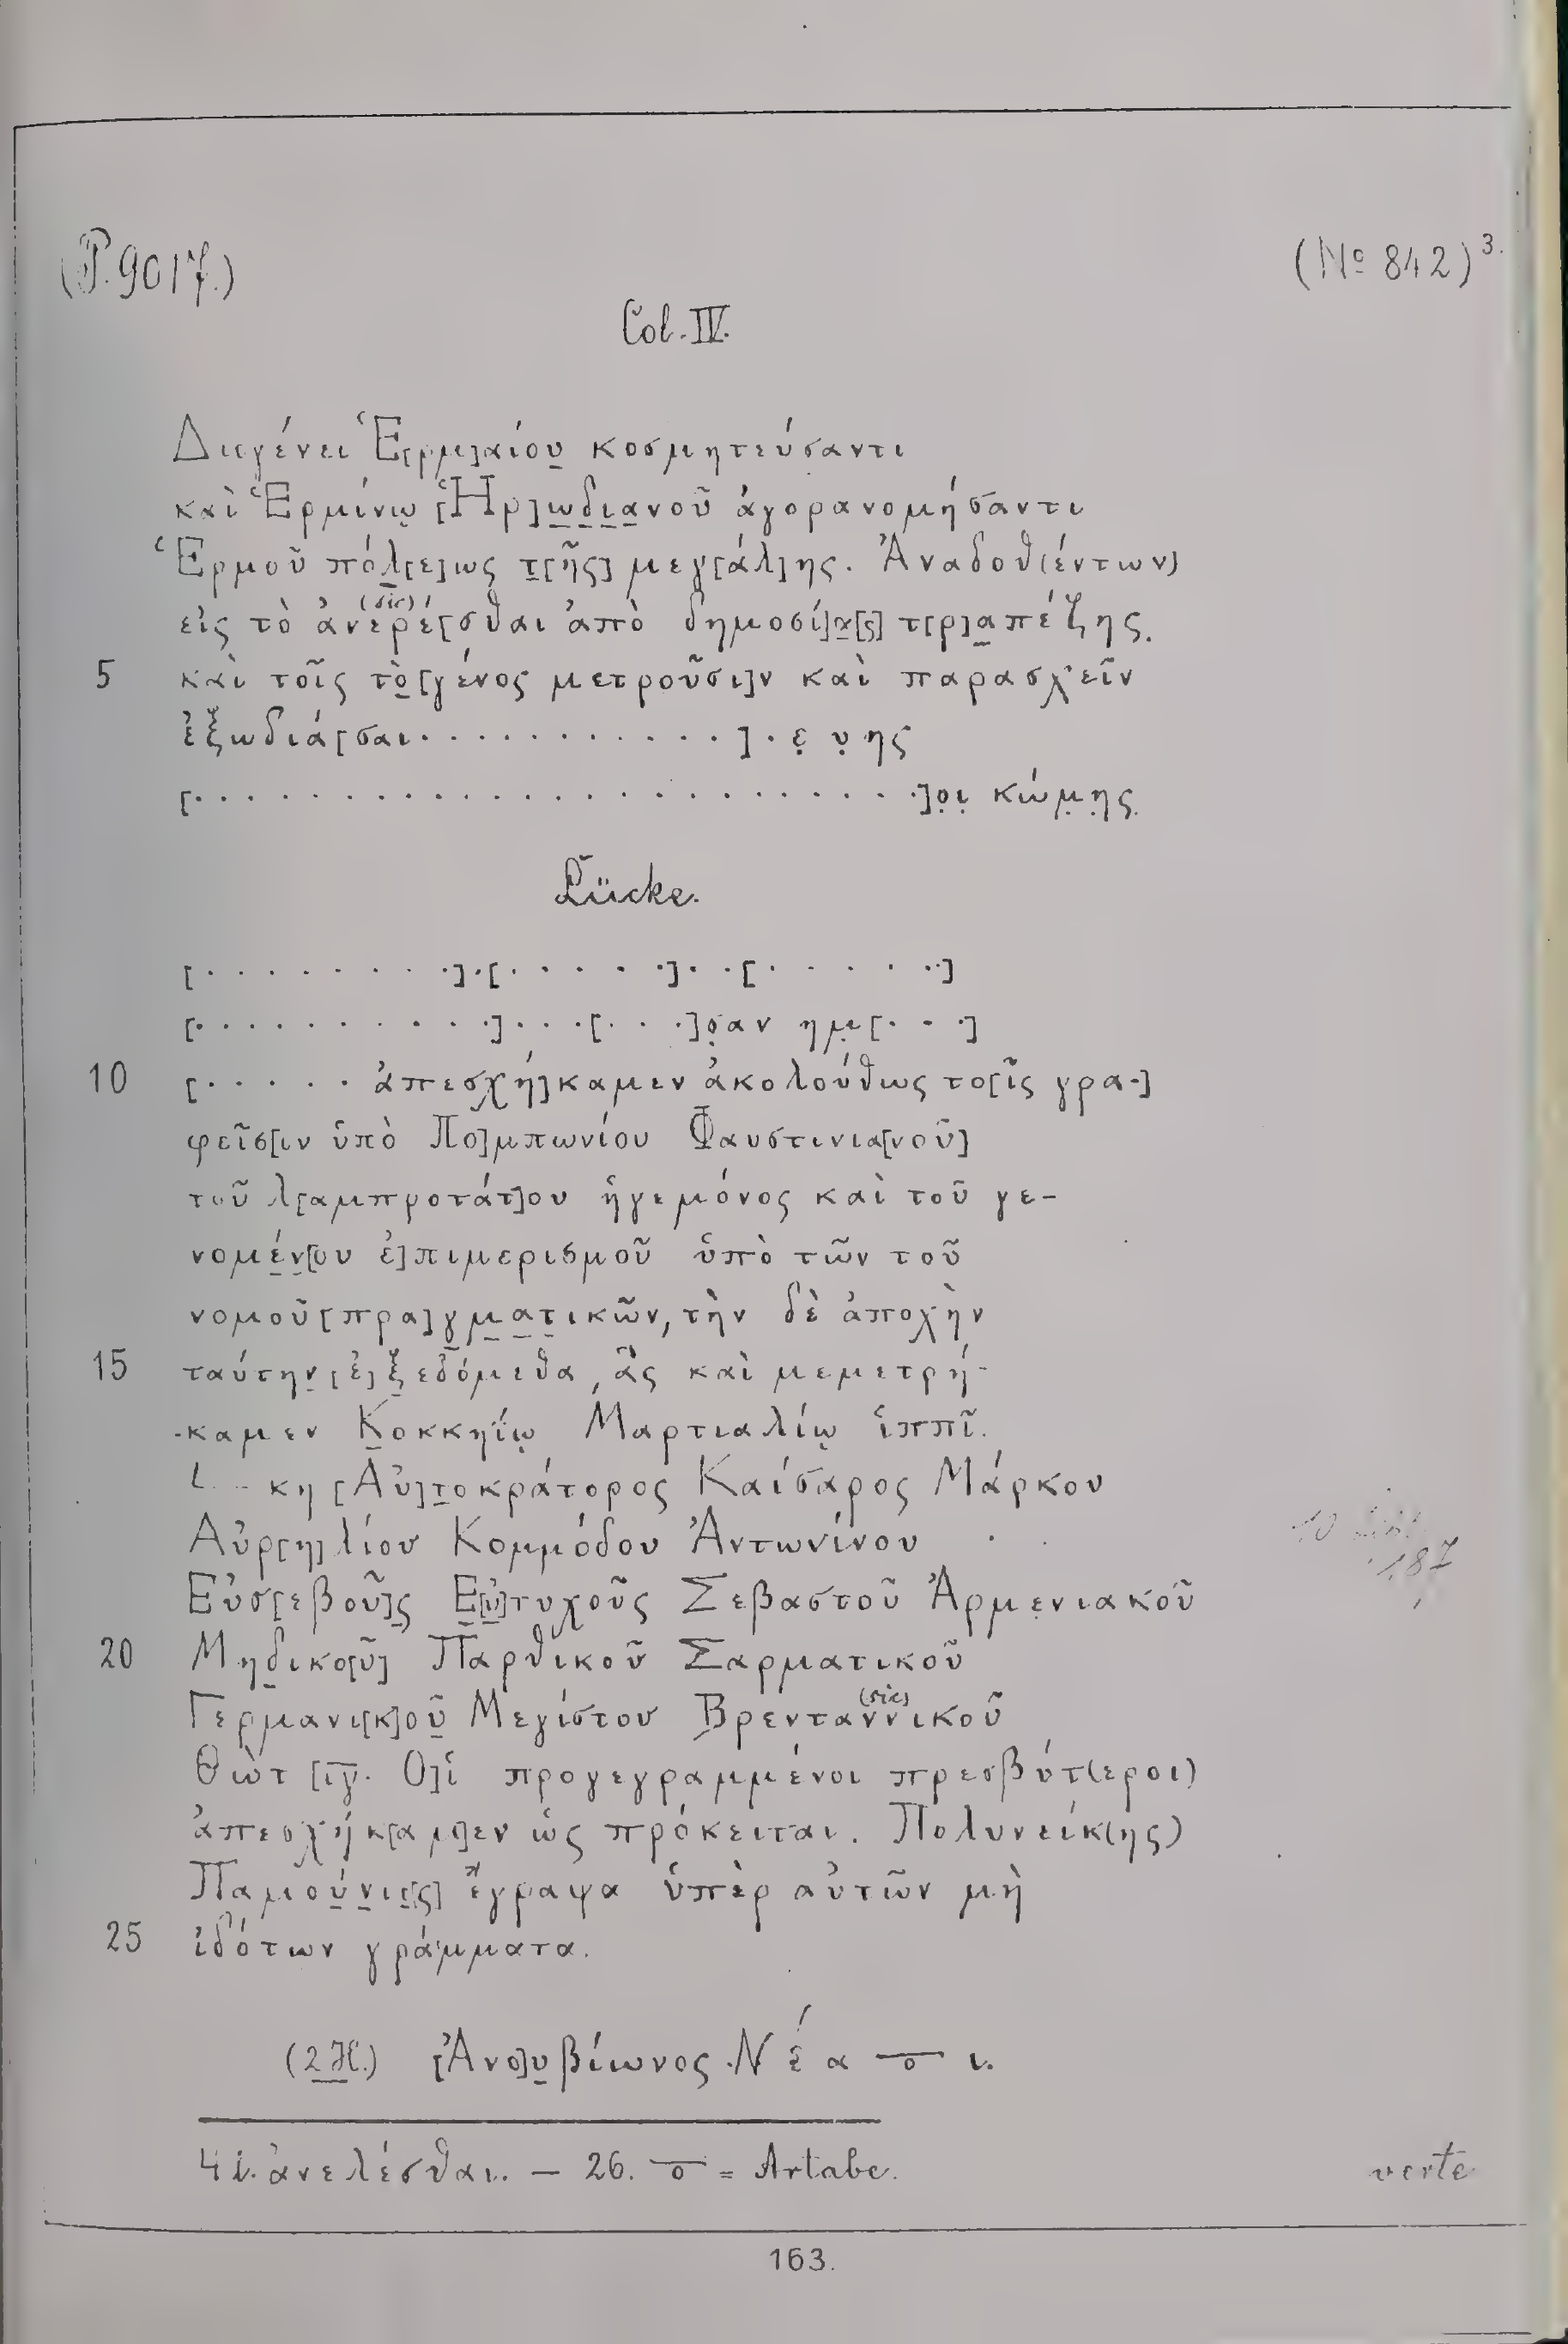 (P. 9017.)
(Nº 842) 3.
Col. IV.
Διογένει Ἑ[ρμ]αίου κοσμητεύσαντι
καὶ Ἑρμίνῳ [Ἡρ]ωδιανοῦ ἀγορανομήσαντι
Ἑρμοῦ πόλ[ε]ως τ[ῆς] μεγ[άλ]ης. Ἀναδοθ(έντων)
(sic)
εἰς τὸ ἀνερέ[σθαι ἀπὸ δημοσί]α[ς] τ[ρ]απέζης.
5 καὶ τοῖς τὸ [γένος μετροῦσι]ν καὶ παρασχεῖν
ἐξωδιά[σαι· · · · · · · · · · ·] · ε υ ης
[· · · · · · · · · · · · · · · · · · · · · · · ·]οι κώμης.
Lücke.
[· · · · · · · · ·] · [· · · · · ·] · · [· · · · · ··]
[· · · · · · · · · ·] · · · [· · · ·]σαν ημ[· · ·]
10 [· · · · · · ἀπεσχή]καμεν ἀκολούθως το[ῖς γρα-]
φεῖσ[ιν ὑπὸ Πο]μπωνίου Φαυστινια[νοῦ]
τοῦ λ[αμπροτάτ]ου ἡγεμόνος καὶ τοῦ γε-
νομέν[ου ἐ]πιμερισμοῦ ὑπὸ τῶν τοῦ
νομοῦ [πρα]γματικῶν, τὴν δὲ ἀποχὴν
15 ταύτην [ἐ]ξεδόμεθα, ἃς καὶ μεμετρή-
-καμεν Κοκκηΐῳ Μαρτιαλίῳ ἱππῖ.
L κη [Αὐ]τοκράτορος Καίσαρος Μάρκου
Αὐρ[η]λίου Κομμόδου Ἀντωνίνου
Εὐσ[εβοῦ]ς Ε[ὐ]τυχοῦς Σεβαστοῦ Ἀρμενιακοῦ
187
20 Μηδικο[ῦ] Παρθικοῦ Σαρματικοῦ
(sic)
Γερμανι[κ]οῦ Μεγίστου Βρενταννικοῦ
Θὼτ [ιγ. Ο]ἱ προγεγραμμένοι πρεσβύτ(εροι)
ἀπεσχήκ[αμ]εν ὡς πρόκειται. Πολυνείκ(ης)
Παμιούνι[ς] ἔγραψα ὑπὲρ αὐτῶν μὴ
25 ἰδότων γράμματα.
(2 H.) [Ἀνο]υβίωνος Νέα ⨪ ι.
4 l. ἀνελέσθαι. — 26. ⨪ = Artabe.
verte
163.